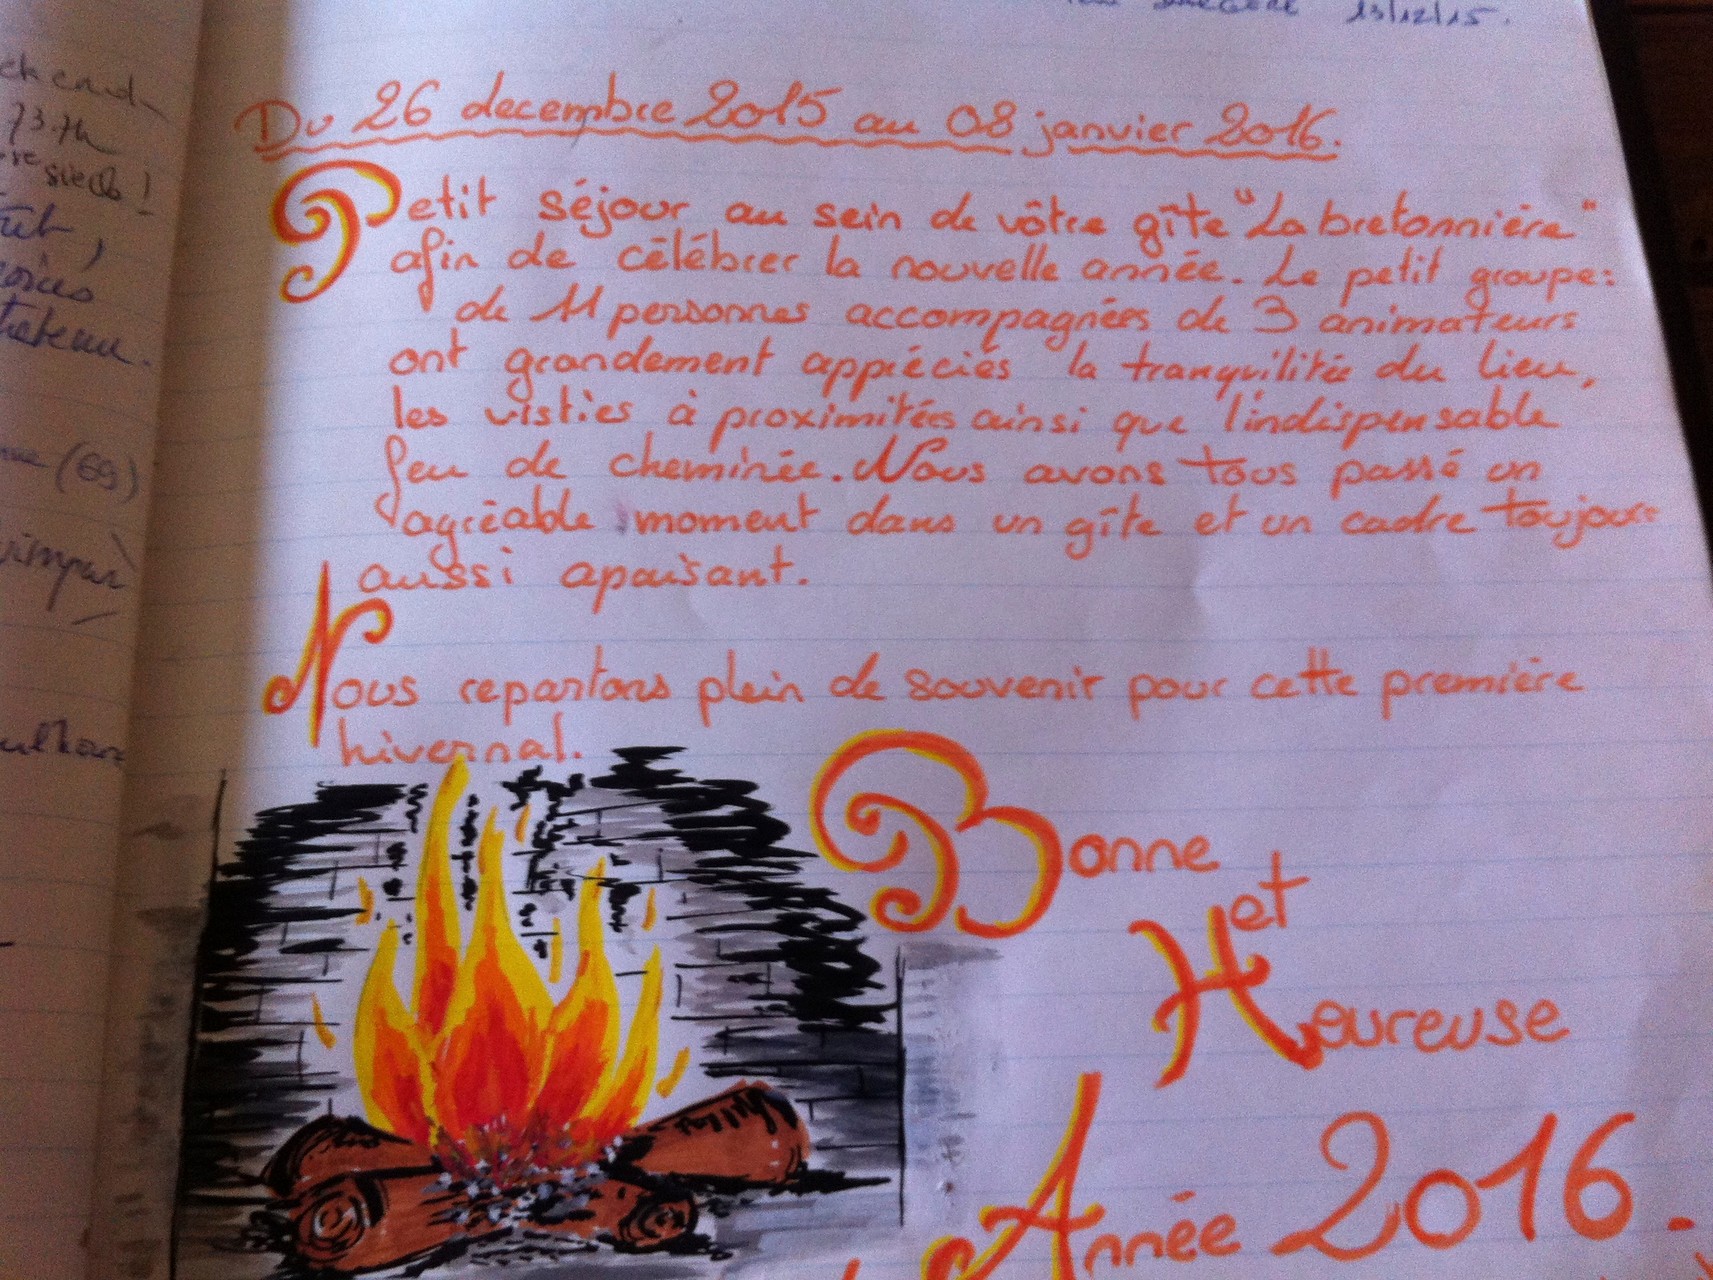 13/12/15.
Du 26 decembre 2015 au 08 janvier 2016.
Petit séjour au sein de vôtre gîte "La bretonnière"
afin de célébrer la nouvelle année. Le petit groupe:
de 11 personnes accompagnées de 3 animateurs
ont grandement appréciés la tranquilitée du lieu,
les visties à proximitées ainsi que l'indispensable
feu de cheminée. Nous avons tous passé un
agréable moment dans un gîte et un cadre toujours
aussi apaisant.
Nous repartons plein de souvenir pour cette première
hivernal.
Bonne
et
Heureuse
Année 2016.
(69)